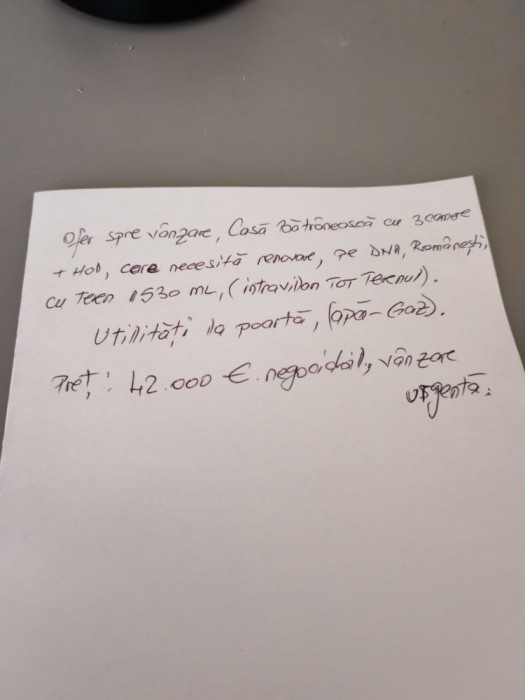 Ofer spre vânzare, Casă Bătrânească cu 3 camere
+ Hol, care necesită renovare, pe DNA, Românești,
cu Teren 1530 ML, (intravilan TOT Terenul).
Utilități la poartă, (apă - Gaz).
Preț: 42.000 € negociabil, vânzare
urgentă.